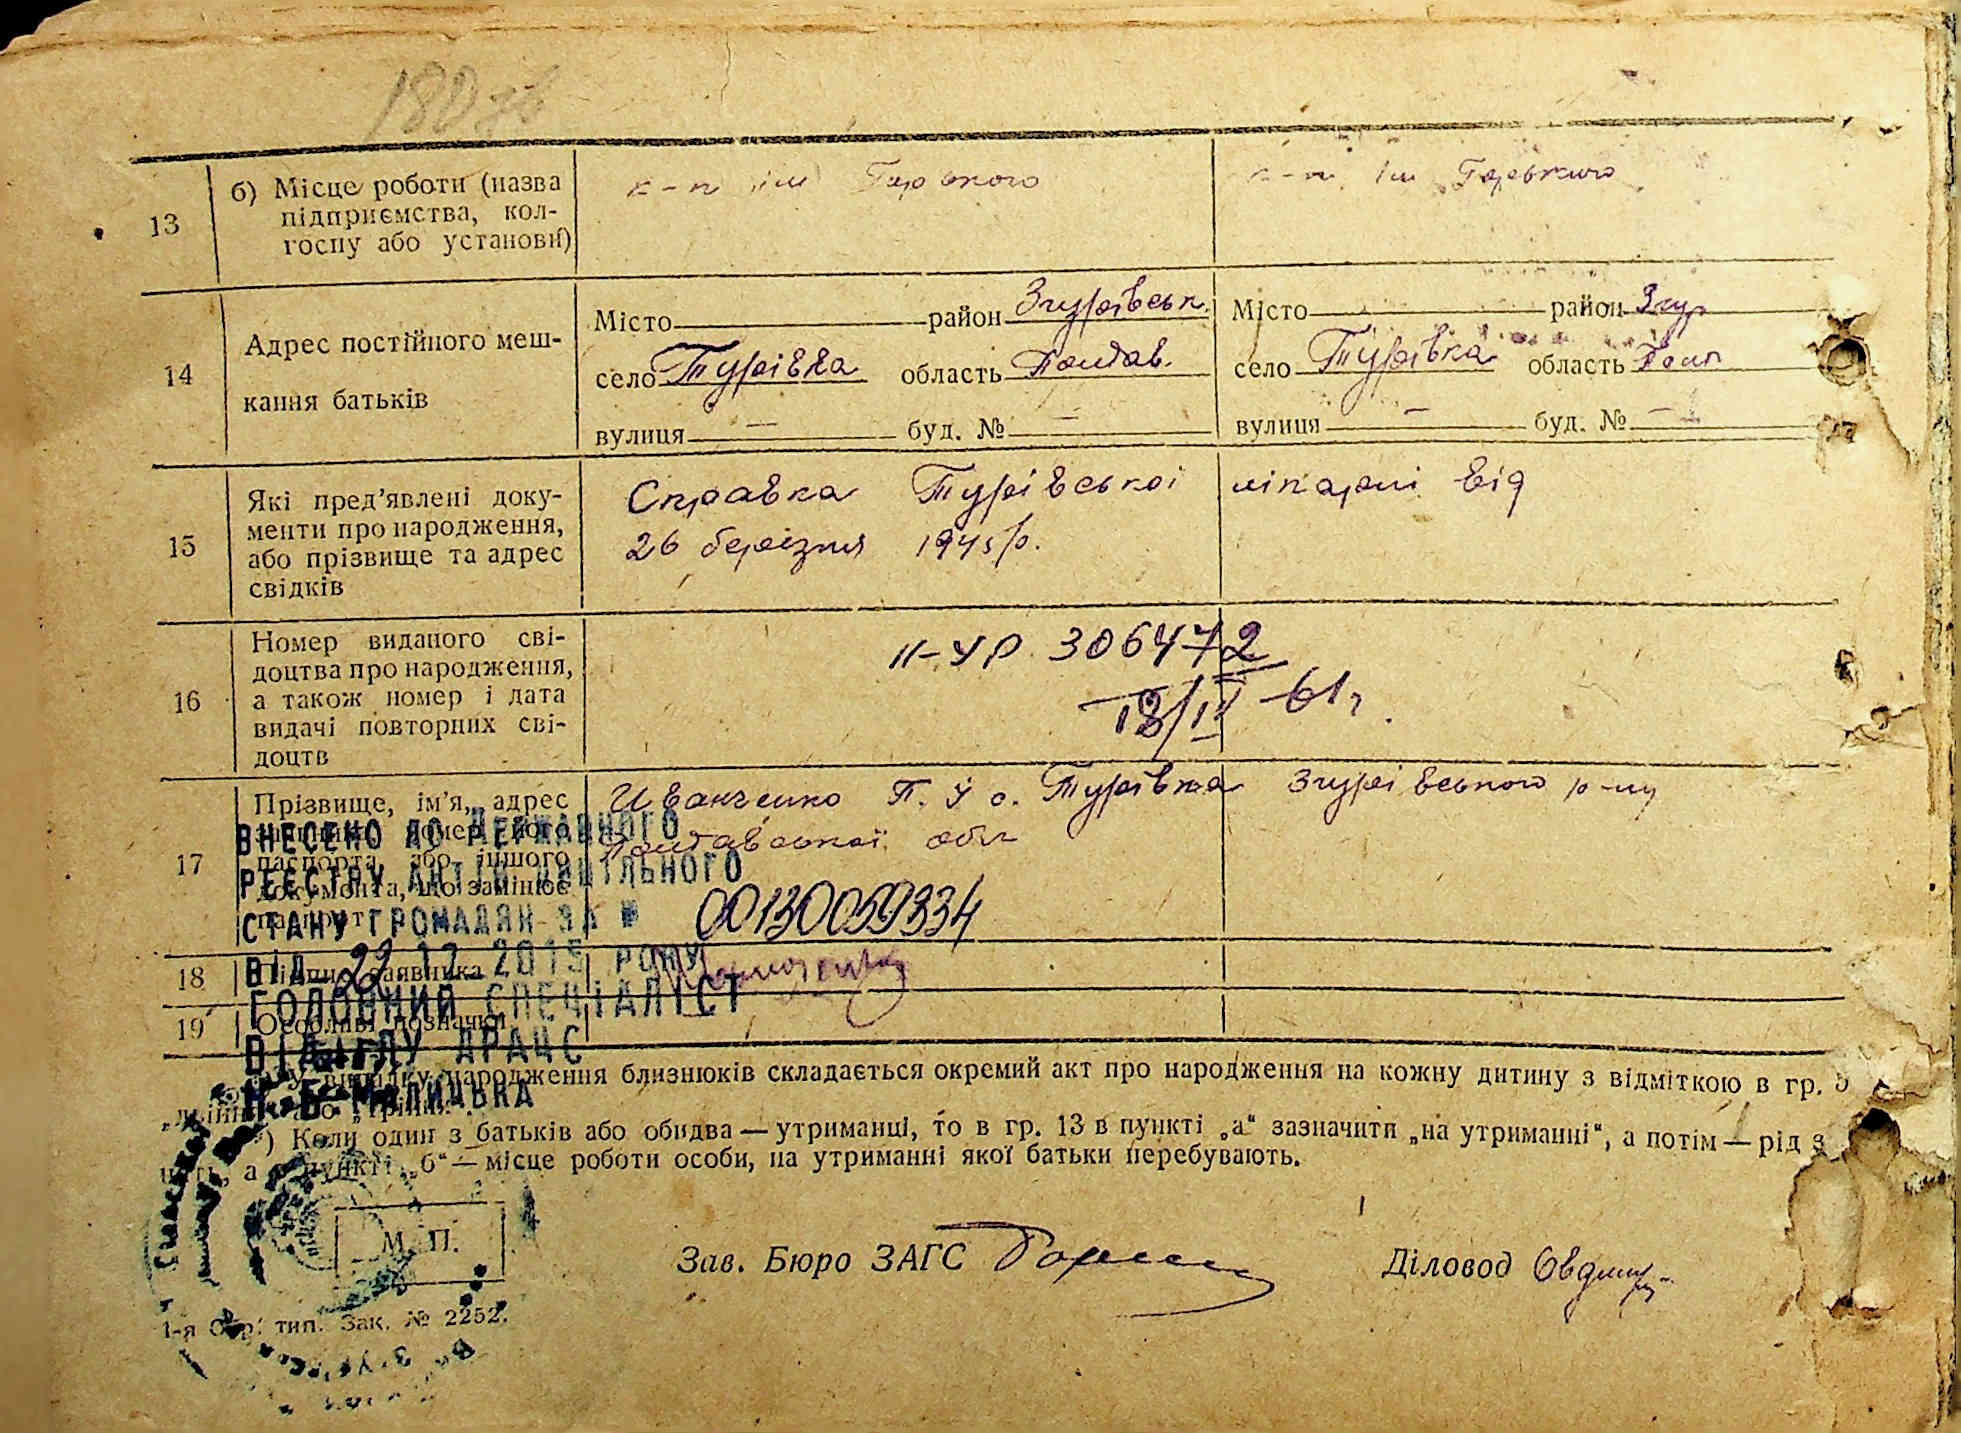 180 зв
13
б) Місце роботи (назва
підприємства, кол-
госпу або установи)
к-п ім Горького
к-п ім Горького
14
Адрес постійного меш-
кання батьків
Місто район Згурівськ.
село Турівка область Полтав.
вулиця — буд. № —
Місто район Згур
село Турівка область Полт
вулиця — буд. № —
15
Які пред'явлені доку-
менти про народження,
або прізвище та адрес
свідків
Справка Турівської лікарні від
26 березня 1945 р.
16
Номер виданого сві-
доцтва про народження,
а також номер і дата
видачі повторних сві-
доцтв
II-УР 306472
18/II 61 г.
17
Прізвище, ім'я, адрес
паспорта, або іншого
документа, що замінює
Иванченко П. У с. Турівка Згурівського р-ну
Полтавської обл
ВНЕСЕНО ДО ДЕРЖАВНОГО
РЕЄСТРУ АКТІВ ЦИВІЛЬНОГО
СТАНУ ГРОМАДЯН ЗА № 00130059334
ВІД 22 12 2015 РОКУ
ГОЛОВНИЙ СПЕЦІАЛІСТ
ВІДДІЛУ ДРАЦС
Н.Б. МАЛИЧЕВКА
18
Підпис заявника
19
Особливі позначки
У випадку народження близнюків складається окремий акт про народження на кожну дитину з відміткою в гр. 5
„двійня“ або „трійня“.
*) Коли один з батьків або обидва — утриманці, то в гр. 13 в пункті „а“ зазначити „на утриманні“, а потім — рід з
а в пункті „б“ — місце роботи особи, на утриманні якої батьки перебувають.
М. П.
Зав. Бюро ЗАГС
Діловод
1-я Обр. тип. Зак. № 2252.